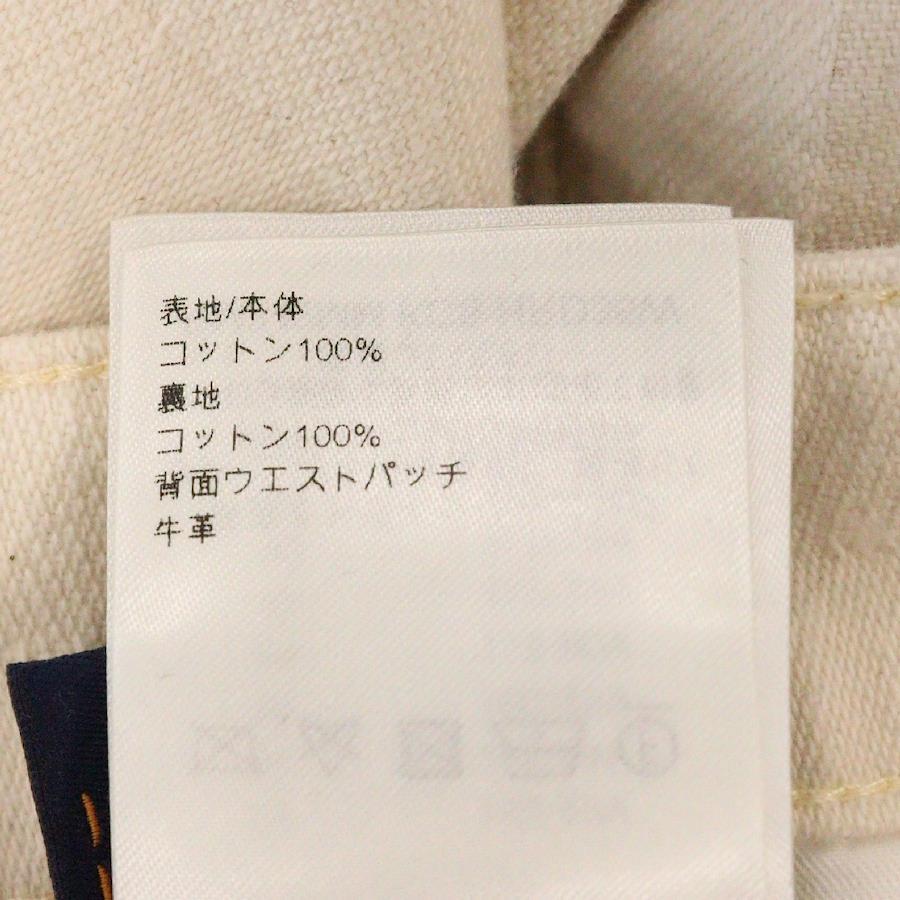 表地/本体
コットン100%
裏地
コットン100%
背面ウエストパッチ
牛革